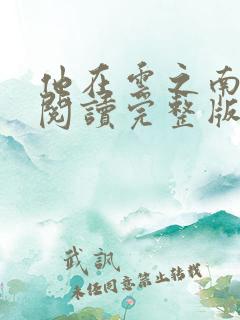 他在雲之南
閱讀完整版
武訊
未經同意禁止轉載